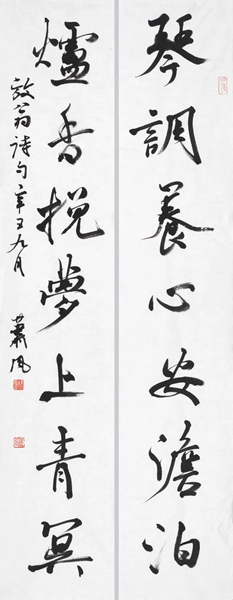 琴調養心安澹泊
爐香挽夢上青冥
放翁詩句辛丑九月
蕭風